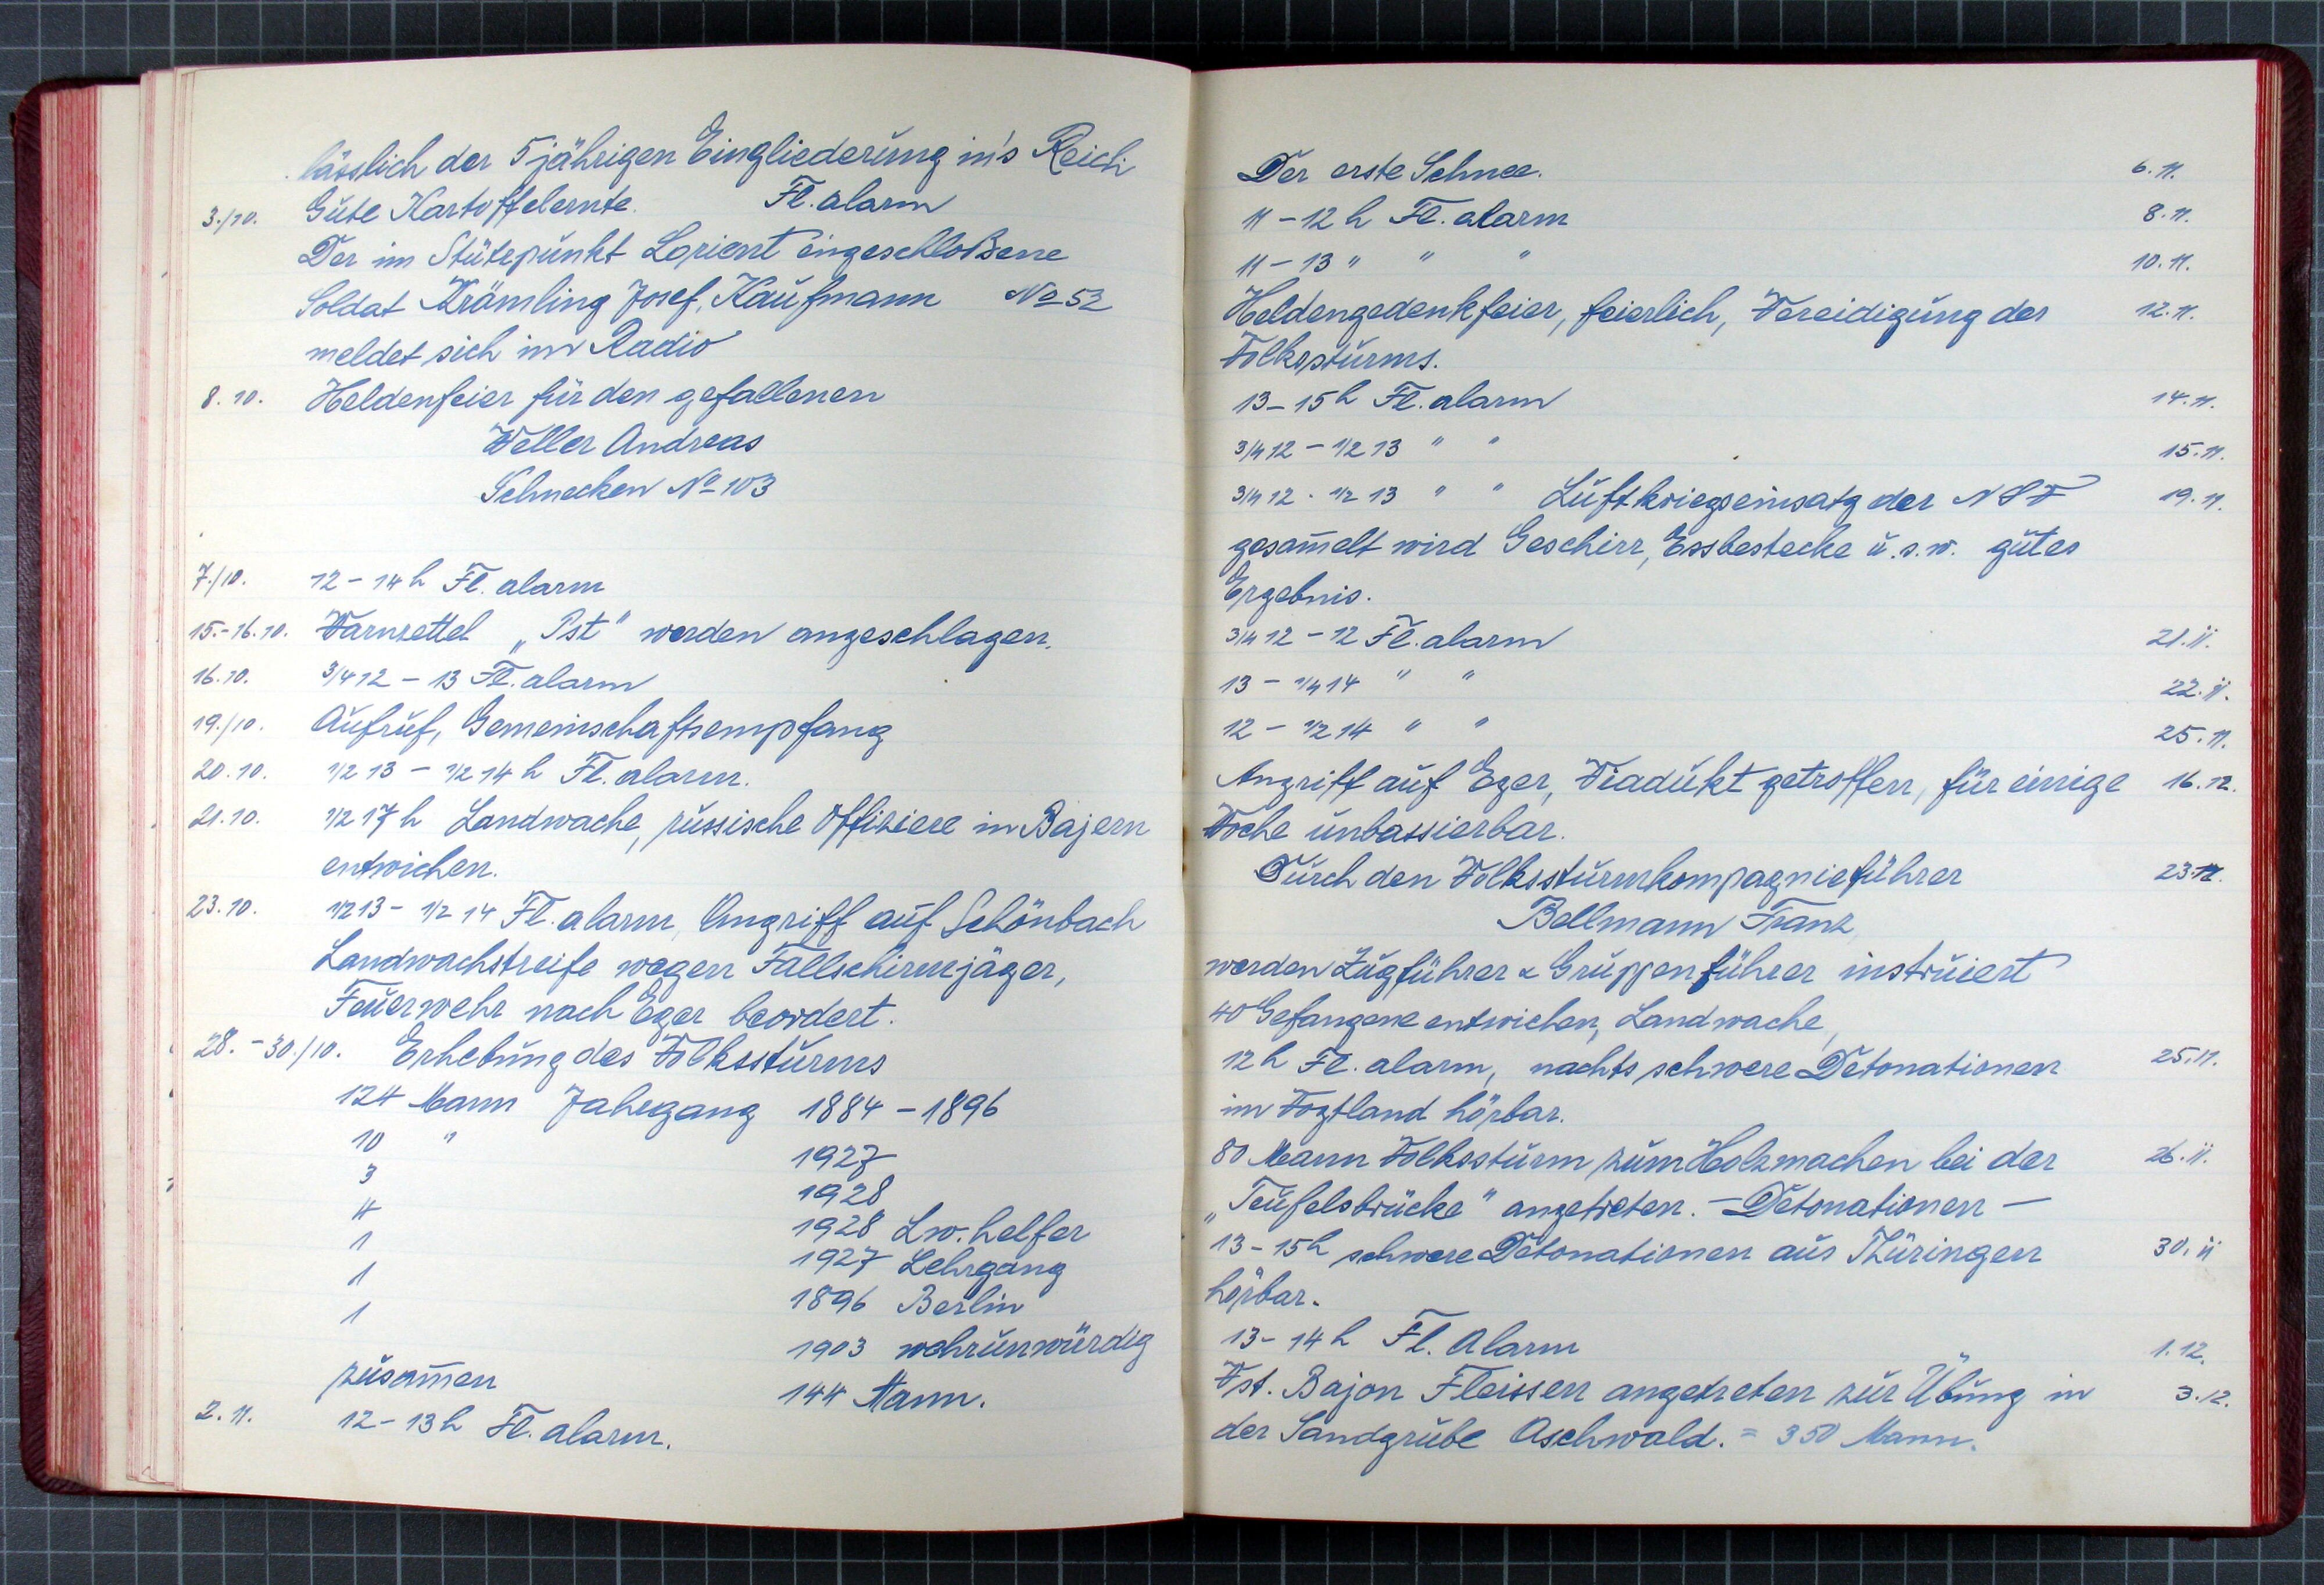 lässlich der 5 jährigen Eingliederung in's Reich
3./10. Gute Kartoffelernte. Fl. alarm
Der im Stützpunkt Lorient eingeschloßene
Soldat Krämling Josef, Kaufmann No 52
meldet sich im Radio
8. 10. Heldenfeier für den gefallenen
Weller Andreas
Schnecken No 103
7./10. 12 - 14 h Fl. alarm
15.-16. 10. Warnzettel „Pst" werden angeschlagen.
16. 10. 3/4 12 - 13 Fl. alarm
19./10. Aufruf, Gemeinschaftsempfang
20. 10. 1/2 13 - 1/2 14 h Fl. alarm.
21. 10. 1/2 17 h Landwache, russische Offiziere in Bajern
entwichen.
23. 10. 1/2 13 - 1/2 14 Fl. alarm, Angriff auf Schönbach
Landwachstreife wegen Fallschirmjäger,
Feuerwehr nach Eger beordert.
28. - 30./10. Erhebung des Volkssturms
124 Mann Jahrgang 1884 - 1896
10 " 1927
3 1928
4 1928 Lw. helfer
1 1927 Lehrgang
1 1896 Berlin
1 1903 wehrunwürdig
zusam̅en 144 Mann.
2. 11. 12 - 13 h Fl. alarm.
Der erste Schnee. 6. 11.
11 - 12 h Fl. alarm 8. 11.
11 - 13 " " " 10. 11.
Heldengedenkfeier, feierlich, Vereidigung des 12. 11.
Volkssturms.
13 - 15 h Fl. alarm 14. 11.
3/4 12 - 1/2 13 " " 15. 11.
3/4 12 - 1/2 13 " " Luftkriegseinsatz der NSV 19. 11.
gesam̅elt wird Geschirr, Essbestecke u. s. w. gutes
Ergebnis.
3/4 12 - 12 Fl. alarm 21. 11.
13 - 1/4 14 " " 22. 11.
12 - 1/2 14 " " 25. 11.
Angriff auf Eger, Viadukt getroffen, für einige 16. 12.
Woche unbassierbar.
Durch den Volkssturmkompagnieführer 23. 11.
Bellmann Franz
werden Zugführer & Gruppenführer instruiert
40 Gefangene entwichen, Landwache,
12 h Fl. alarm, nachts schwere Detonationen 25. 11.
im Vogtland hörbar.
80 Mann Volkssturm zum Holzmachen bei der 26. 11.
„Teufelsbrücke" angetreten. - Detonationen -
13 - 15 h schwere Detonationen aus Thüringen 30. 11
hörbar.
13 - 14 h Fl. Alarm 1. 12.
Vst. Bajon Fleissen angetreten zur Übung in 3. 12.
der Sandgrube Aschwald. = 350 Mann.